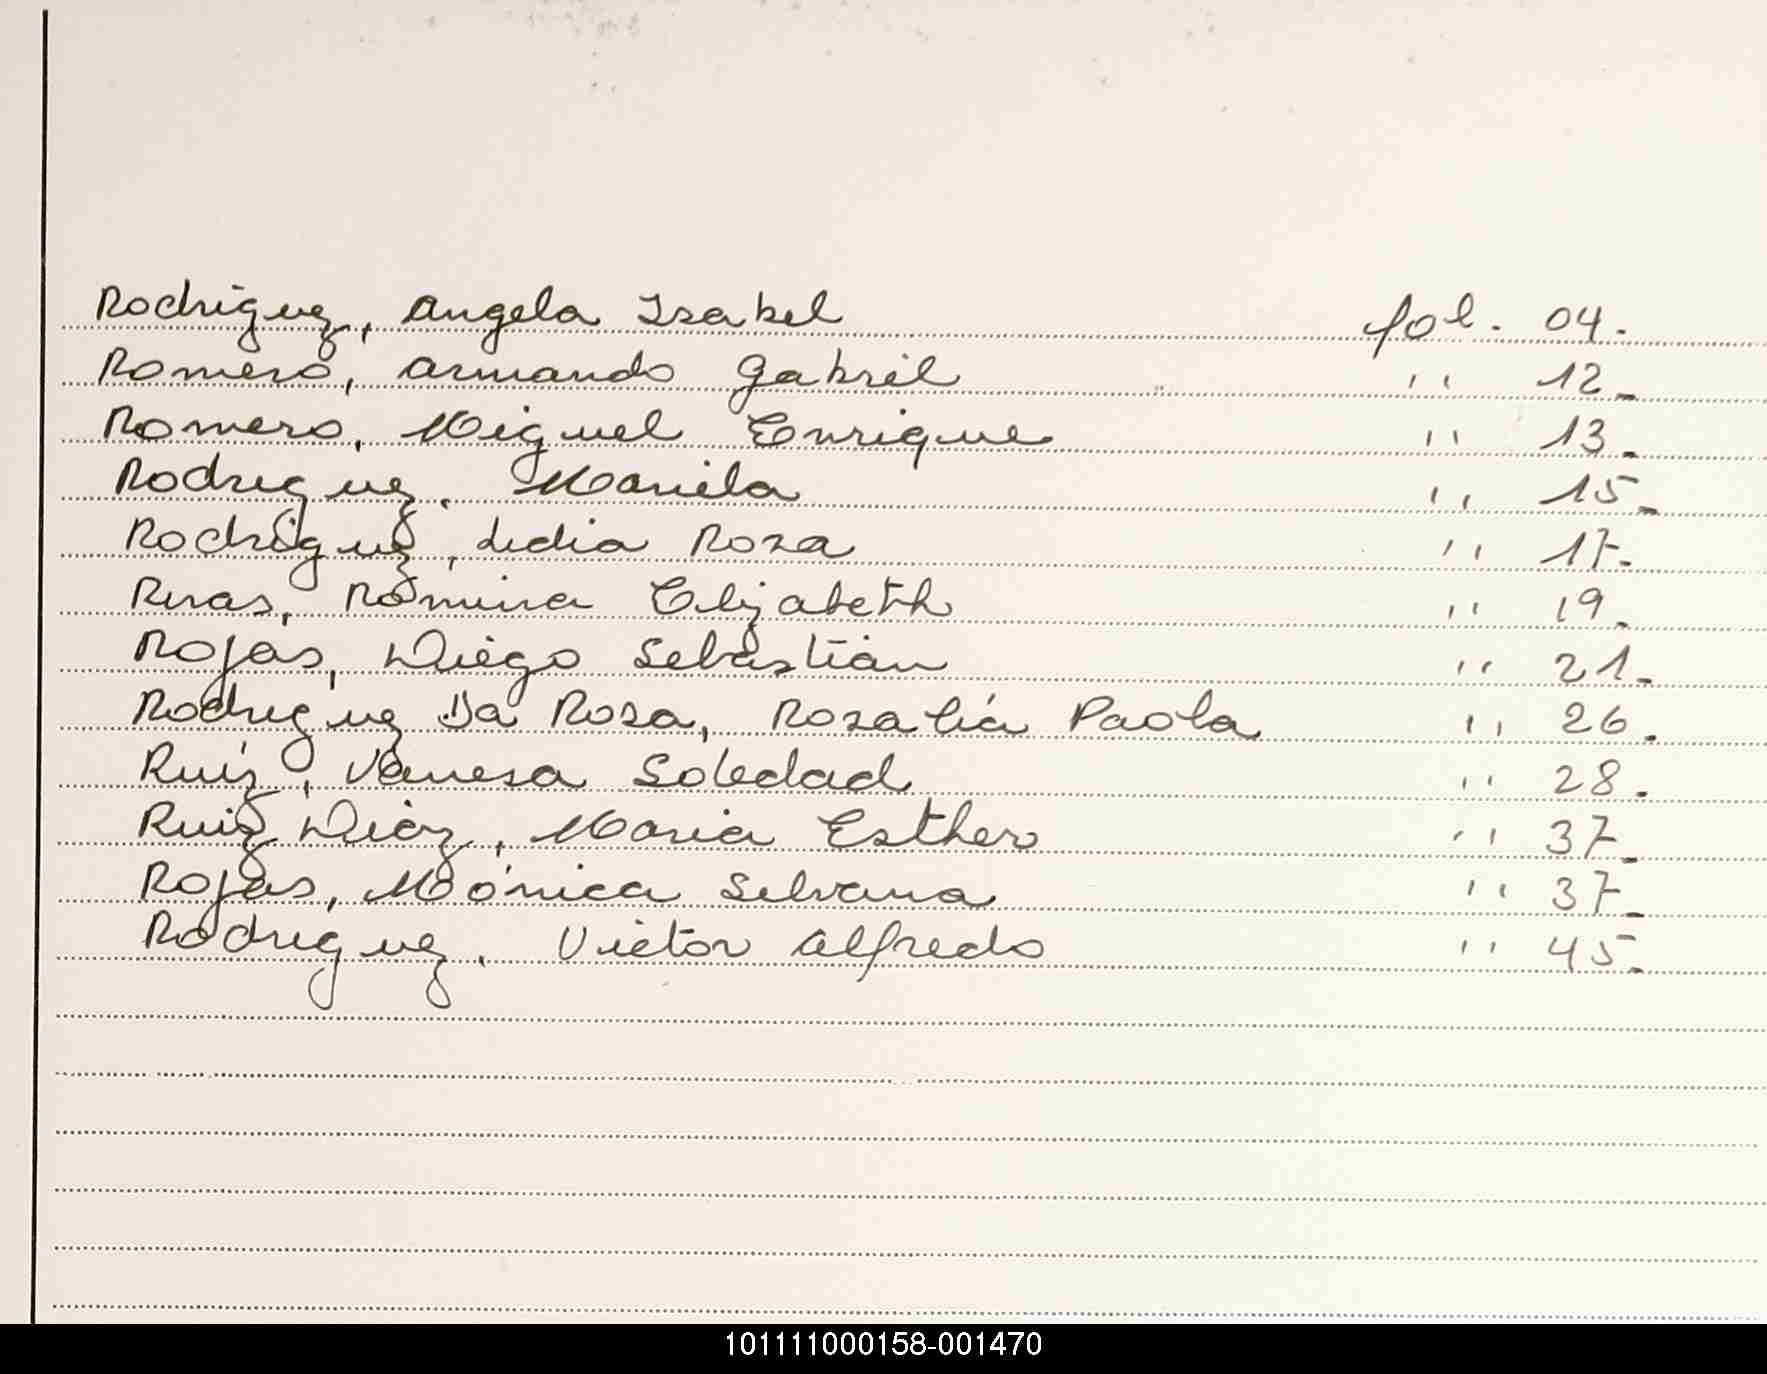 Rodriguez, Angela Isabel fol. 04.
Romero, Armando Gabriel " 12_
Romero, Miguel Enrique " 13_
Rodriguez, Mariela " 15_
Rodriguez, Lidia Rosa " 17_
Rivas, Romina Elizabeth " 19_
Rojas, Diego Sebastián " 21_
Rodriguez Da Rosa, Rosalía Paola " 26_
Ruíz, Vanesa Soledad " 28_
Ruiz Diaz, Maria Esther " 37_
Rojas, Mónica Silvana " 37_
Rodriguez, Victor Alfredo " 45_
101111000158-001470